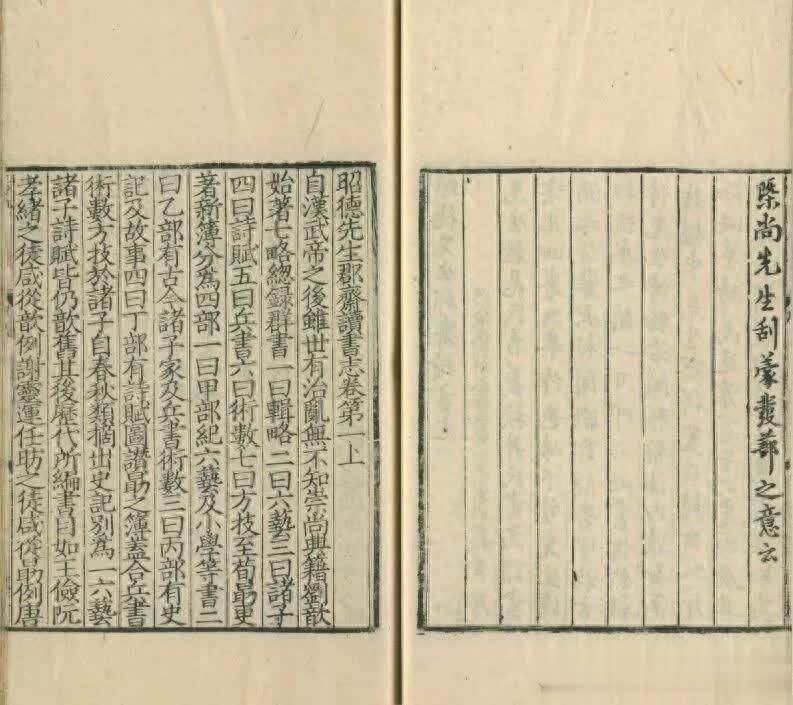 槩尚先生刮蒙發蔀之意云
昭德先生郡齋讀書志卷第一上
自漢武帝之後雖世有治亂無不知崇尚典籍劉歆
始著七略總錄群書一曰輯略二曰六藝三曰諸子
四曰詩賦五曰兵書六曰術數七曰方技至荀勗更
著新簿分為四部一曰甲部紀六藝及小學等書二
曰乙部有古今諸子家及兵書術數三曰丙部有史
記及故事四曰丁部有詩賦圖讃勗之簿蓋合兵書
術數方技於諸子自春秋類摘出史記別為一六藝
諸子詩賦皆仍歆舊其後歷代所編書目如王儉阮
孝緒之徒咸從歆例謝靈運任昉之徒咸從勗例唐